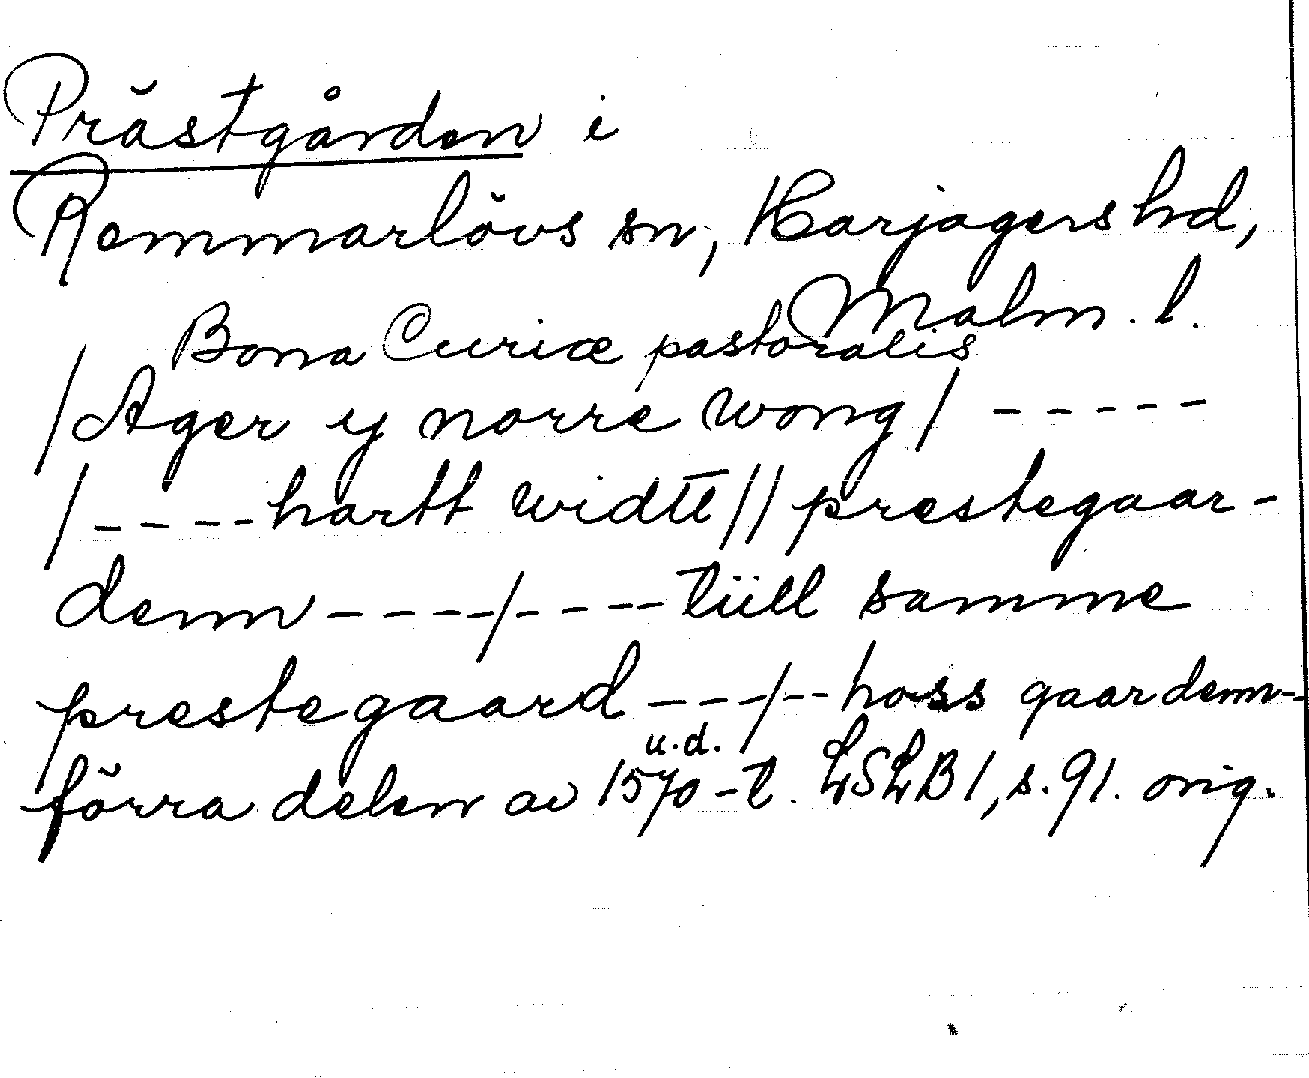 Prästgården i
Remmarlövs sn, Harjagers hd,
Malm. l.
Bona Curiæ pastoralis
/Ager y norre wong/ -----
/----hartt widtt// prestegaar-
denn----/----tüll samme
prestegaard ---/--hoss gaardenn--
förra delen av 1570-t. u.d. LSLB1, s. 91. orig.